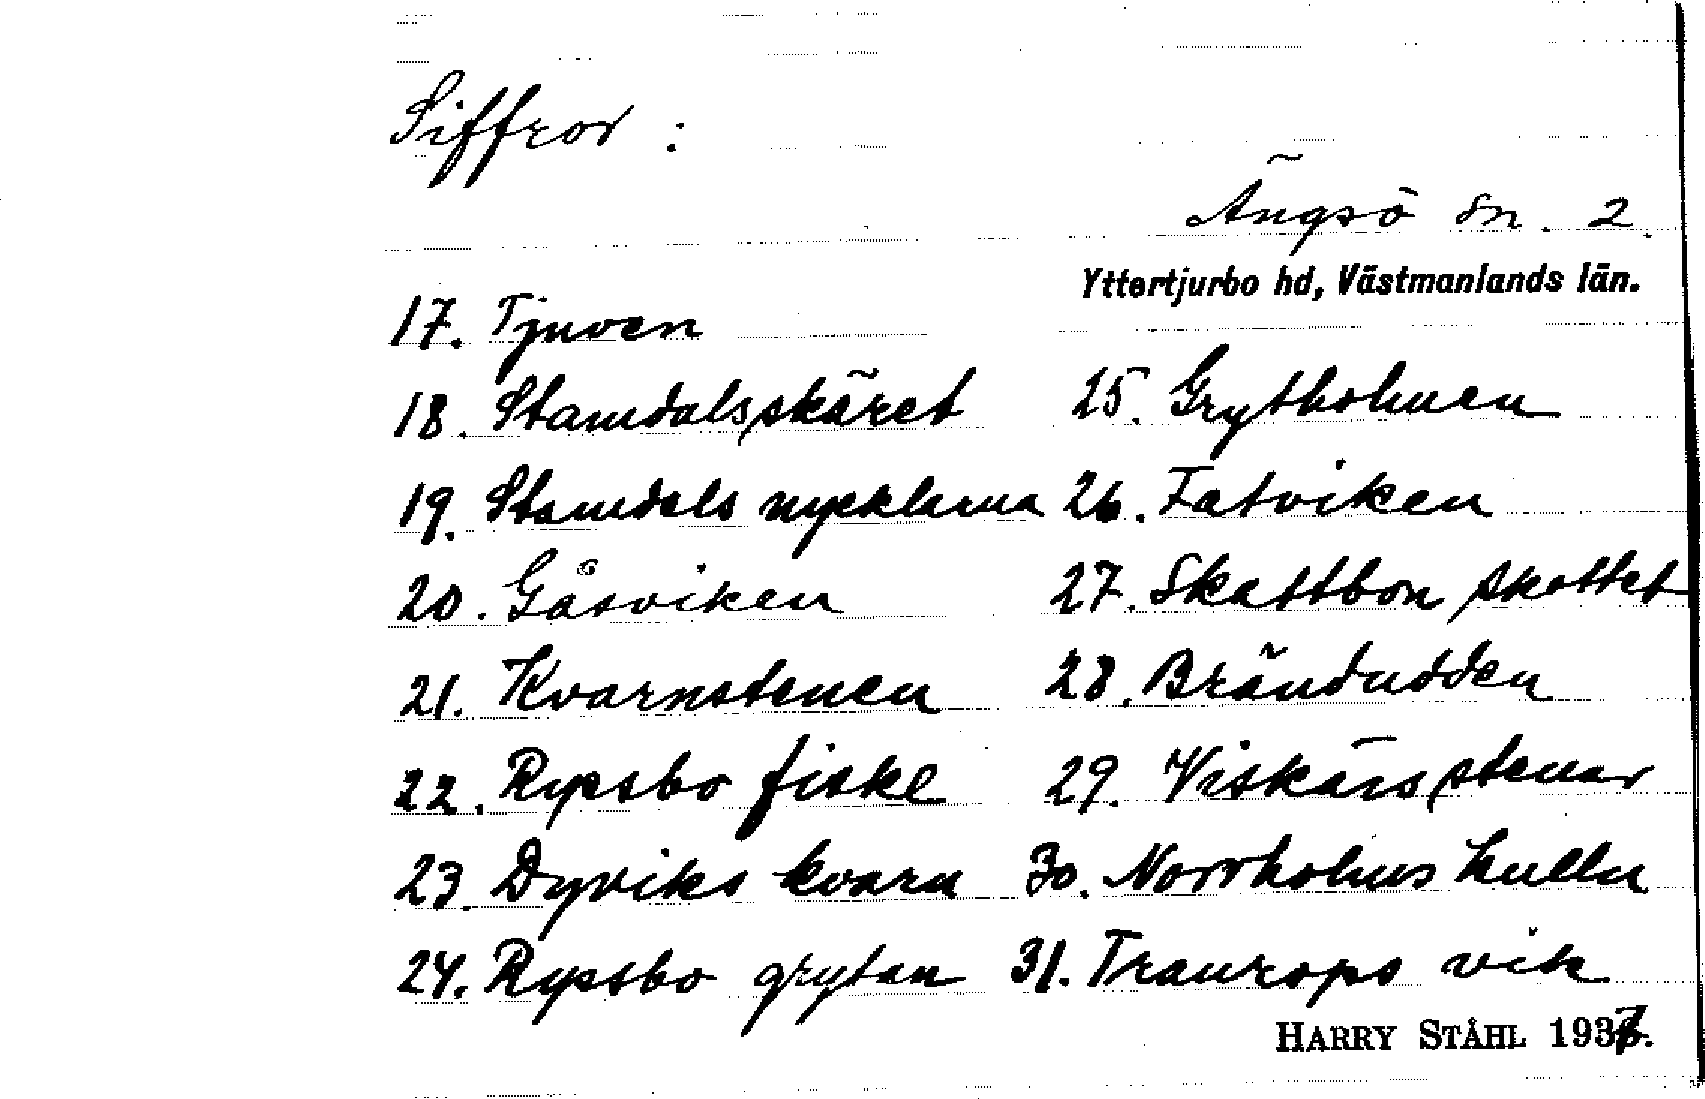 Siffror :
Ängsö sn. 2.
Yttertjurbo hd, Västmanlands län.
17. Tjuven
18. Stamdalsskäret
19. Stamdals nycklarna
20. Gåsviken
21. Kvarnstenen
22. Rypsbo fiske
23. Dyviks kvarn
24. Rypsbo grytan
25. Grytholmen
26. Fatviken
27. Skattbon skottet
28. Brändudden
29. Viskärs stenar
30. Norrholms kullu
31. Tranrops vik
HARRY STÅHL 1937.